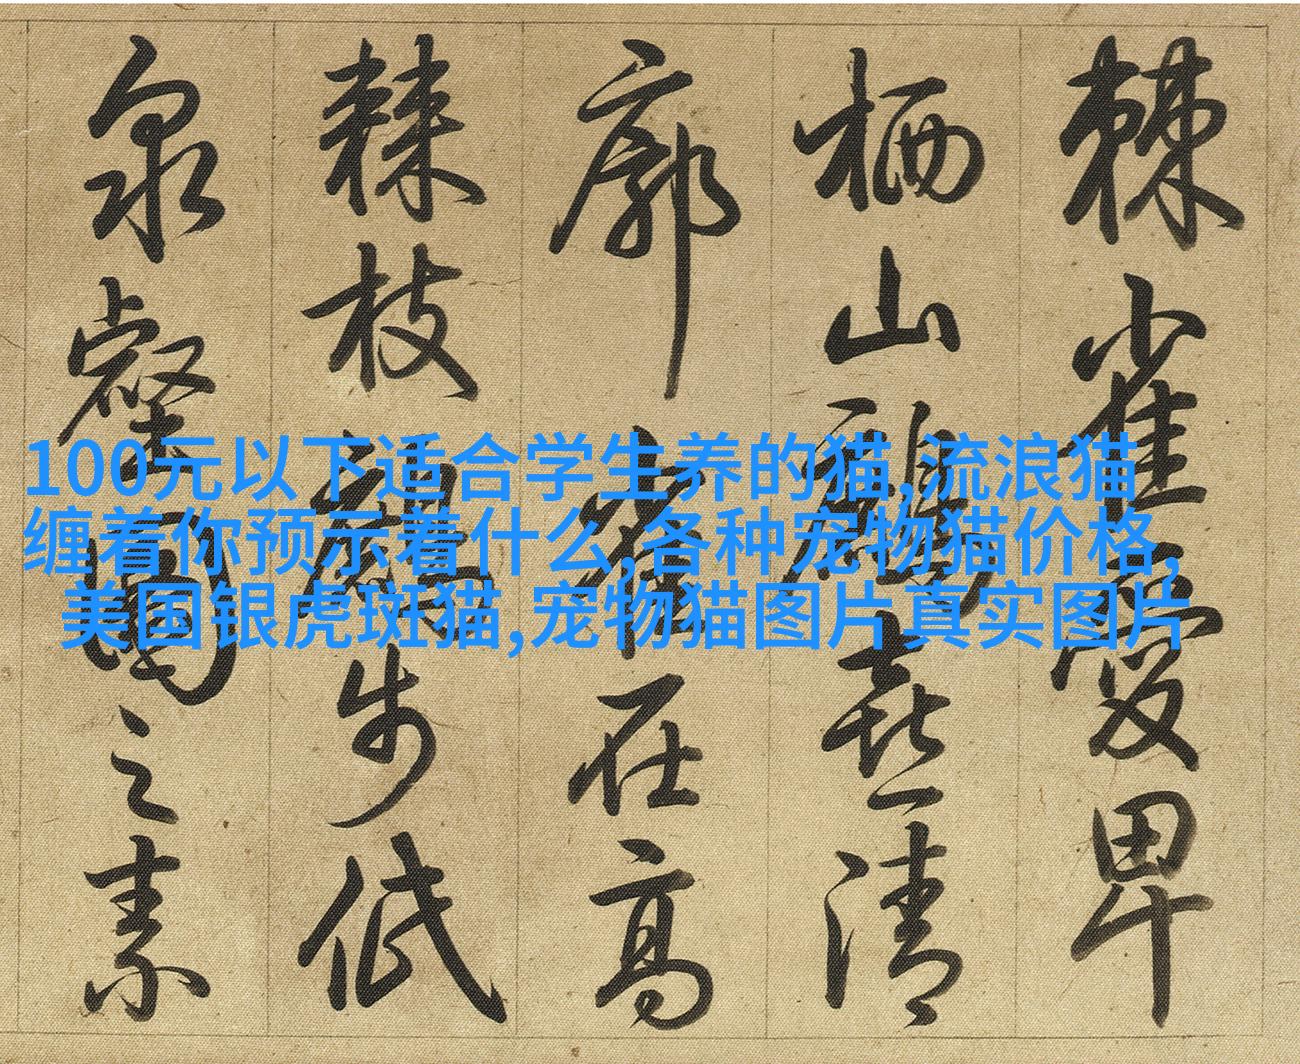 100元以下适合学生养的猫,流浪猫
缠着你预示着什么,各种宠物猫价格,
美国银虎斑猫,宠物猫图片真实图片
棘雀愛卑
栖山喜清
廓在高
棘枝步低
泉壑之素